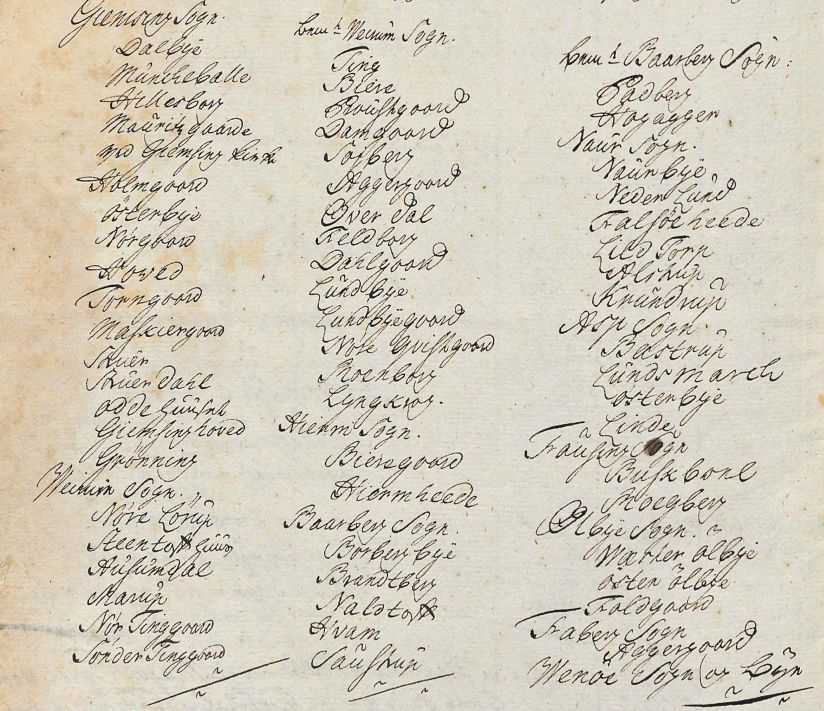 Giemsing Sogn.
Dalbÿe
Münchehalle
Hillesborg
Mauritzgaarde
ved Giemsing Kirke
Holmgaard
Österbÿe
Nørgaard
Hoved
Torngaard
Maskiergaard
Skuer
Skuer Dahl
Odde
Giemsinghoved
Grønning
Weium Sogn.
Nøre Lørup
Steentoft
Ausumdal
Marup
Nør Tinggaard
Sönder Tinggaard
Weium Sogn.
Ting
Biere
Damgaard
Søeberg
Aggergaard
Over Dal
Feldborg
Dahlgaard
Lündbÿe
Lundbÿegaard
Nøre Qvistgaard
Roenborg
Lyngkrog.
Hierm Sogn.
Bieregaard
Hiermheede
Baarberg Sogn
Borbergbÿe
Brandtberg
Naldtoft
Hvam
Saustrup
Baarberg Sogn:
Padberg
Hogagger
Naür Sogn.
Naürbÿe
Neder Lund
Falsöe heede
Lild Torp
Alstrup
Krundrup
Asp Sogn.
Bastrup
Lündsmarch
Österbÿe
Linde
Fausing Sogn
Buskbonl
Roegberg
Ölbÿe Sogn.
Vester ölbÿe
Östen ölbÿe
Foldgaard
Faberg Sogn
Aggergaard
Wenöe Sogn og Bÿe